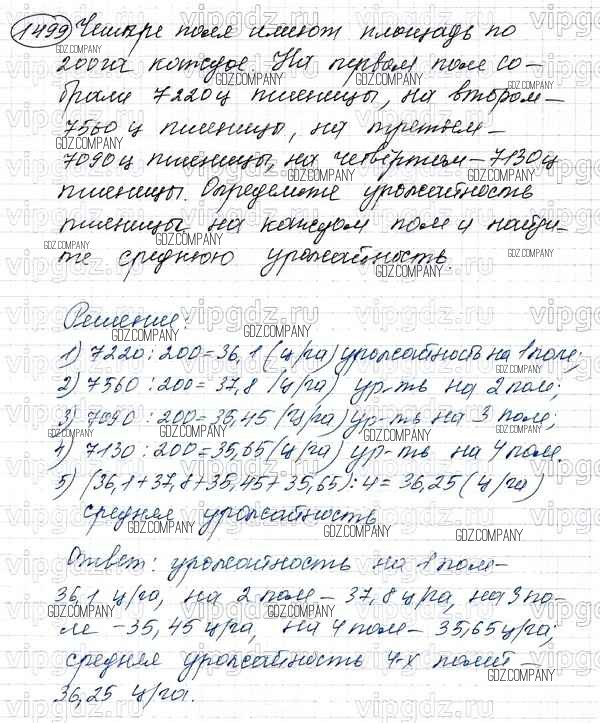 1499 Четыре поля имеют площадь по
200га каждое. На первом поле со-
брали 7220ц пшеницы, на втором –
7560 ц пшеницы, на третьем –
7090 ц пшеницы, на четвёртом – 7130ц
пшеницы. Определите урожайность
пшеницы на каждом поле и найди-
те среднюю урожайность.
Решение:
1) 7220 : 200 = 36,1 (ц/га) урожайность на 1 поле;
2) 7560 : 200 = 37,8 (ц/га) ур-ть на 2 поле;
3) 7090 : 200 = 35,45 (ц/га) ур-ть на 3 поле;
4) 7130 : 200 = 35,65 (ц/га) ур-ть на 4 поле.
5) (36,1 + 37,8 + 35,45 + 35,65) : 4 = 36,25 (ц/га)
средняя урожайность.
Ответ: урожайность на 1 поле –
36,1 ц/га, на 2 поле – 37,8 ц/га, на 3 по-
ле – 35,45 ц/га, на 4 поле – 35,65 ц/га;
средняя урожайность 4-х полей –
36,25 ц/га.